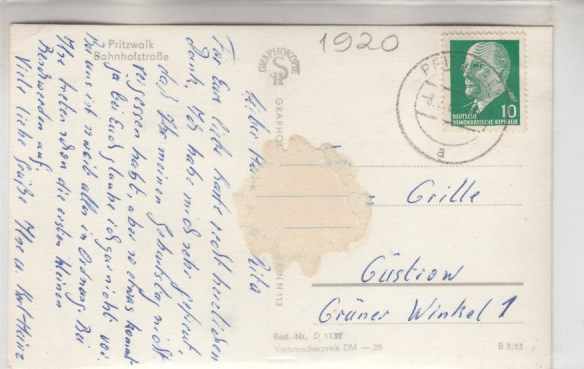 Pritzwalk
Bahnhofstraße
1920
GRAPHOKOPIE
GRAPHO
N 113
10
DEUTSCHE
DEMOKRATISCHE REPUBLIK
a
Rita
Für Eure liebe Karte recht herzlichen
Dank. Ich habe mich sehr gefreut,
daß Ihr meinen Geburtstag nicht
vergessen habt, aber so etwas kommt
ja bei Euch glaube ich gar nicht vor.
Bei uns ist soweit alles in Ordnung. Bei
Ilse
die ersten kleinen
Viele liebe Grüße Ilse u. Karl-Heinz
Grille
Güstrow
Grüner Winkel 1
Best.-Nr. D 1132
Verbraucherpreis DM —,20
B 8/63